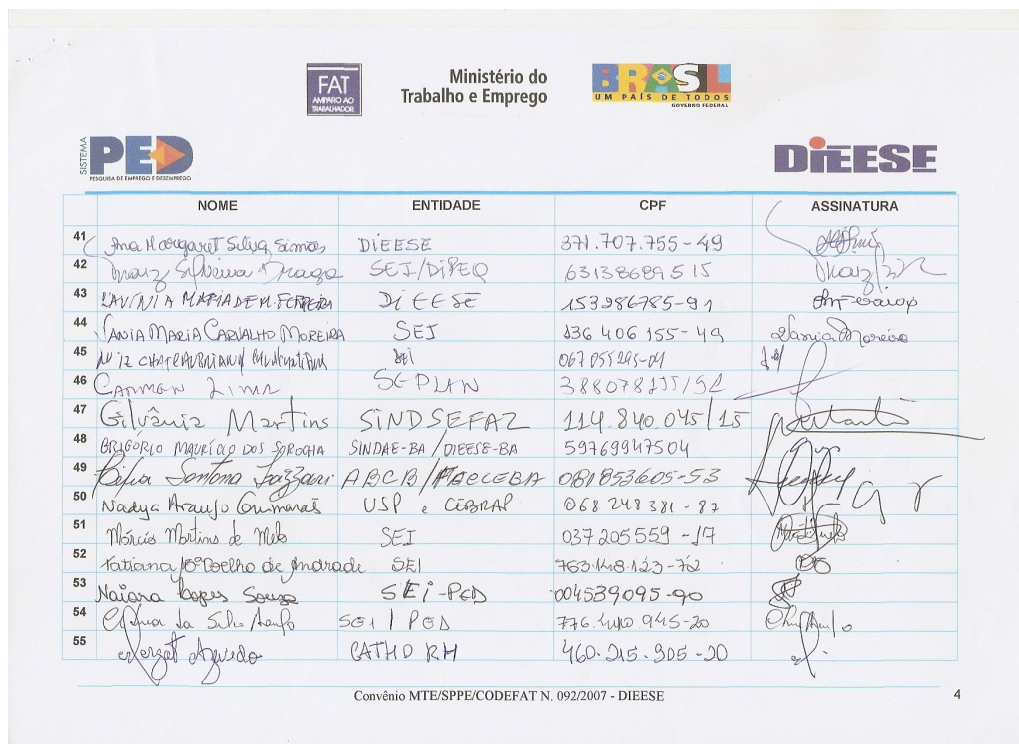 FAT
AMPARO AO
TRABALHADOR
Ministério do
Trabalho e Emprego
BRASIL
UM PAÍS DE TODOS
GOVERNO FEDERAL
SISTEMA
PED
PESQUISA DE EMPREGO E DESEMPREGO
DIEESE
NOME ENTIDADE CPF ASSINATURA
41 Ana Margaret Silva Simões DIEESE 371.707.755-49
42 Silveira Braga SEI/DIPEQ 631386895 15
43 LAVÍNIA MARIA DE M. FERREIRA DIEESE 153986785-91
44 VANIA MARIA CARVALHO MOREIRA SEI 136 406 155-49 Vania Moreira
45 LUIZ CHATEAUBRIAND SEI
46 CARMEN LIMA SEPLAN
47 Gilvânia Martins SINDSEFAZ 114.840.045/15
48 MAURÍCIO DOS SINDAE-BA/DIEESE-BA 59769947504
49 Santana ABCB/ 081853605-53
50 Nadya Araujo Guimarães USP e CEBRAP 068 248 381-87
51 Márcia Martins de Melo SEI 037205559-17
52 Tatiana Coelho de Andrade SEI 763.148.123-72
53 Naiara Lopes Souza SEI-PED 004539095-90
54 da Silva Araujo SEI/PED
55 Azevedo CATHO RH 460.215.905-20
Convênio MTE/SPPE/CODEFAT N. 092/2007 - DIEESE 4